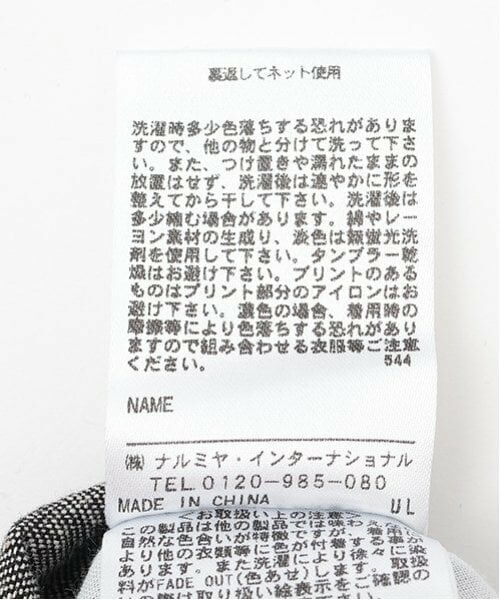 裏返してネット使用
洗濯時多少色落ちする恐れがありま
すので、他の物と分けて洗って下さ
い。また、つけ置きや濡れたままの
放置はせず、洗濯後は速やかに形を
整えてから干して下さい。洗濯後は
多少縮む場合があります。綿やレー
ヨン素材の生成り、淡色は無蛍光洗
剤を使用して下さい。タンブラー乾
燥はお避け下さい。プリントのある
ものはプリント部分のアイロンはお
避け下さい。濃色の場合、着用時の
摩擦等により色落ちする恐れがあり
ますので組み合わせる衣服等ご注意
ください。 544
NAME
(株) ナルミヤ・インターナショナル
TEL.0120-985-080
MADE IN CHINA UL
お取扱い上の注意
この製品は他の製品では味わえ
自然な色合いが特徴ですが着用
より他の衣類等に色が付着する事
あります。また洗濯により徐々に染
料がFADE OUT(色あせ)します。取扱
の際は取り扱い絵表示をご確認の